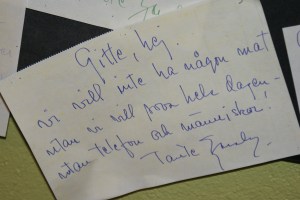 Gitte, hej.
vi vill inte ha någon mat
utan vi vill sova hela dagen -
utan telefon och människor.
Tante